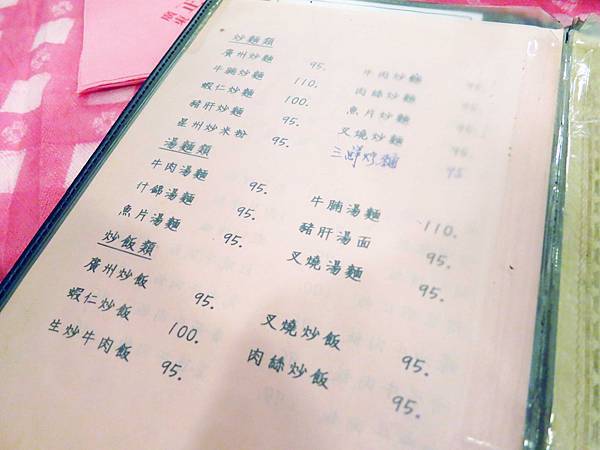 炒麵類
廣州炒麵 95. 牛肉炒麵 95.
牛腩炒麵 110. 肉絲炒麵 95.
蝦仁炒麵 100. 魚片炒麵 95.
豬肝炒麵 95. 叉燒炒麵 95.
星州炒米粉 95. 三鮮炒麵 95
湯麵類
牛肉湯麵 95. 牛腩湯麵 110.
什錦湯麵 95. 豬肝湯面 95.
魚片湯麵 95. 叉燒湯麵 95.
炒飯類
廣州炒飯 95. 叉燒炒飯 95.
蝦仁炒飯 100. 肉絲炒飯 95.
生炒牛肉飯 95.